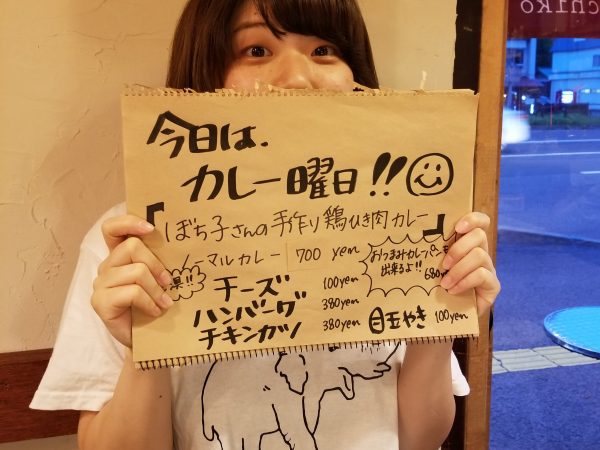 chiko
今日は、
カレー曜日!!
『ぼち子さんの手作り鶏ひき肉カレー』
ノーマルカレー 700 yen
おつまみカレー
出来るよ!!
680
チーズ 100yen
ハンバーグ 380yen
チキンカツ 380yen
目玉やき 100yen